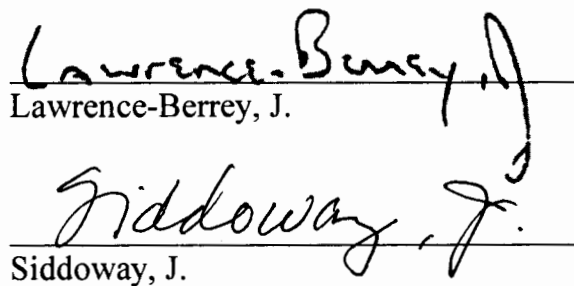 Lawrence-Berrey, J.
Lawrence-Berrey, J.
Siddoway, J.
Siddoway, J.